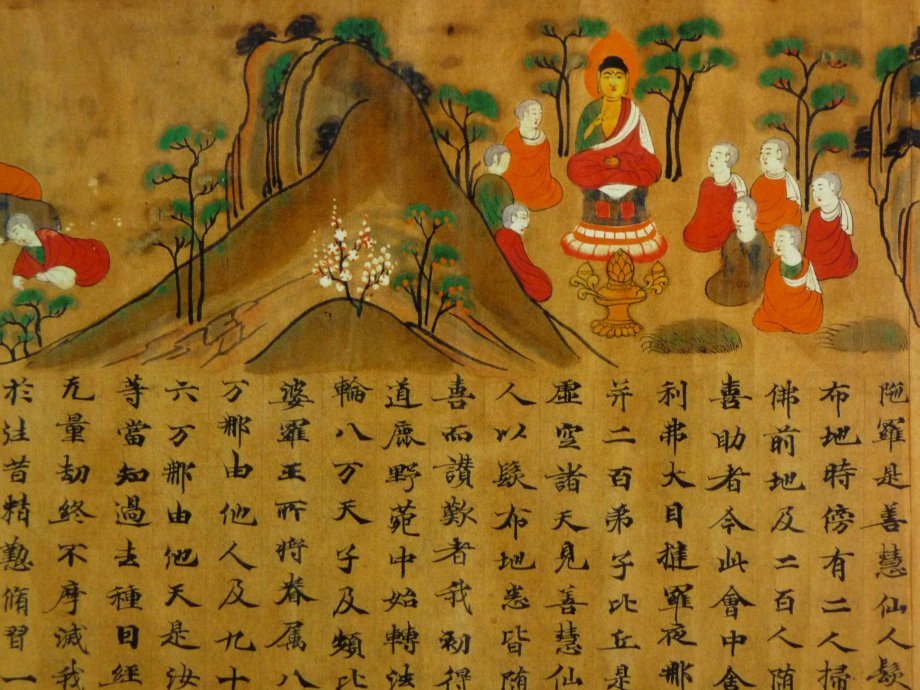 陁羅是善慧仙人髮
布地時傍有二人掃
佛前地及二百人随
喜助者今此會中舍
利弗大目揵羅夜那
并二百弟子比丘是
虛空諸天見善慧仙
人以髮布地悉皆随
喜而讃歎者我初得
道鹿野菀中始轉法
輪八万天子及頻比
婆羅王所將眷属八
万那由他人及九十
六万那由他天是汝
等當知過去種囙經
无量劫終不摩滅我
於往昔精懃脩習一